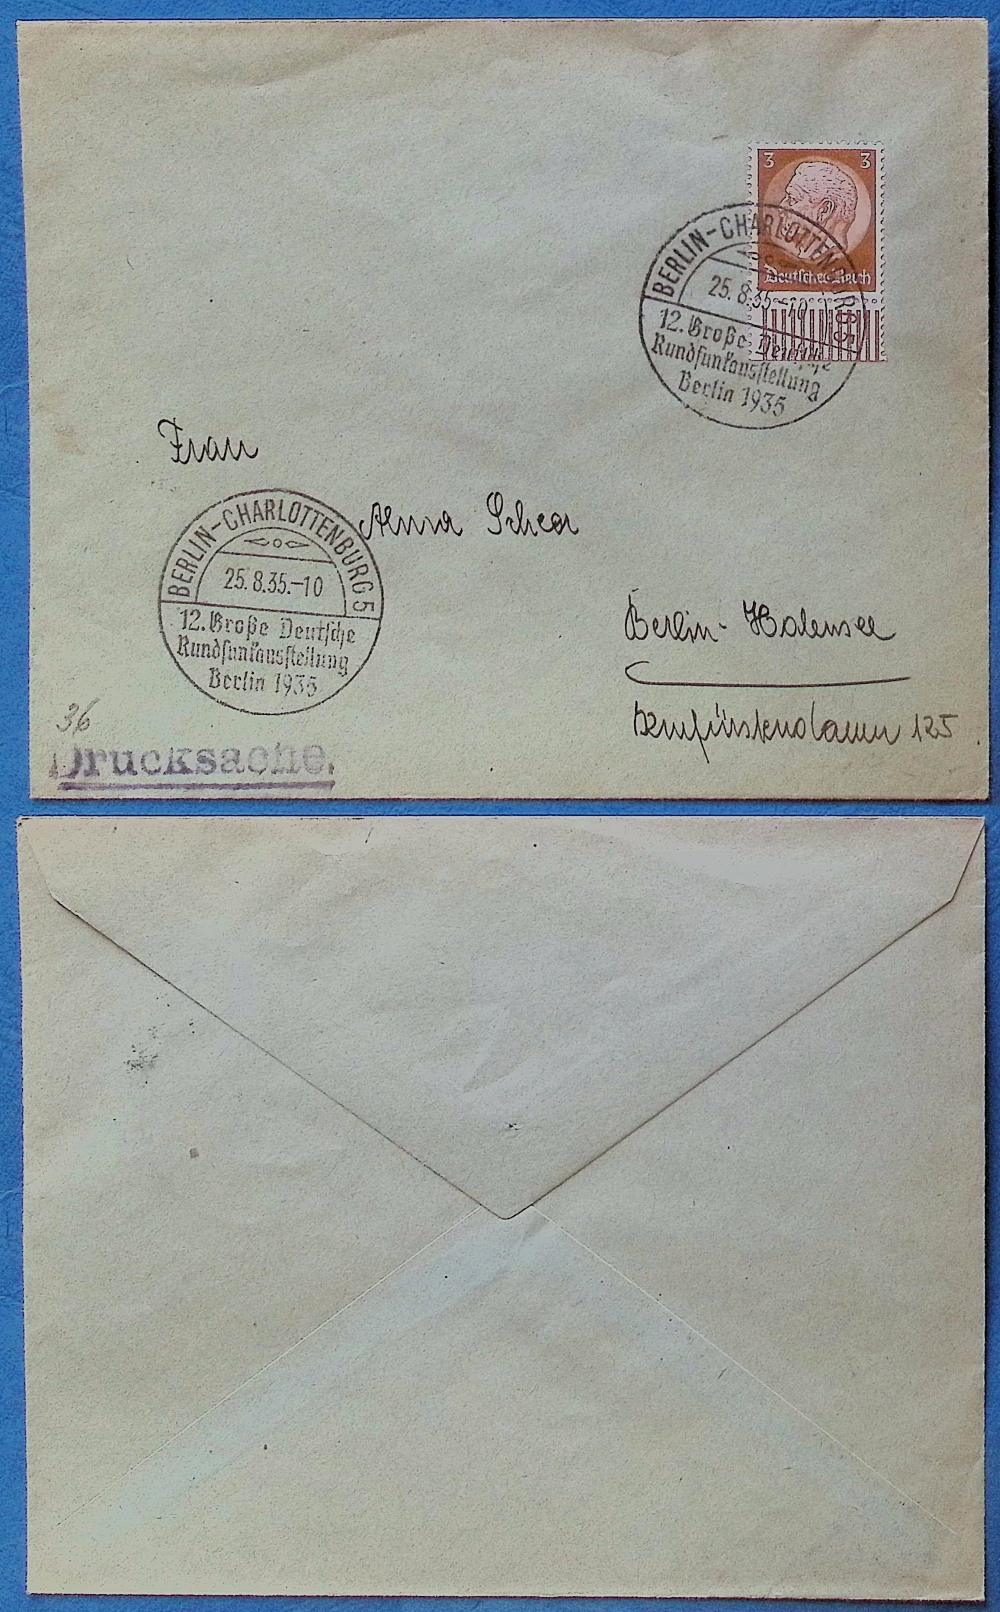 3 3
Deutsches Reich
BERLIN-CHARLOTTENBURG 5
25.8.35.-10
12. Große Deutsche
Rundfunkausstellung
Berlin 1935
Frau
Anna Scheer
BERLIN-CHARLOTTENBURG 5
25.8.35.-10
12. Große Deutsche
Rundfunkausstellung
Berlin 1935
Berlin-Halensee
125
36
Drucksache.